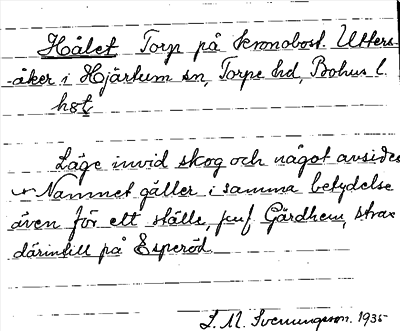 Hålet Torp på kronobost. Utters-
-åker i Hjärtum sn, Torpe hd, Bohus l.
hst
Läge invid skog och något avsides
Namnet gäller i samma betydelse
även för ett ställe, jmf Gärdhem, strax
därintill på Esperöd.
L. M. Svenungsson. 1935